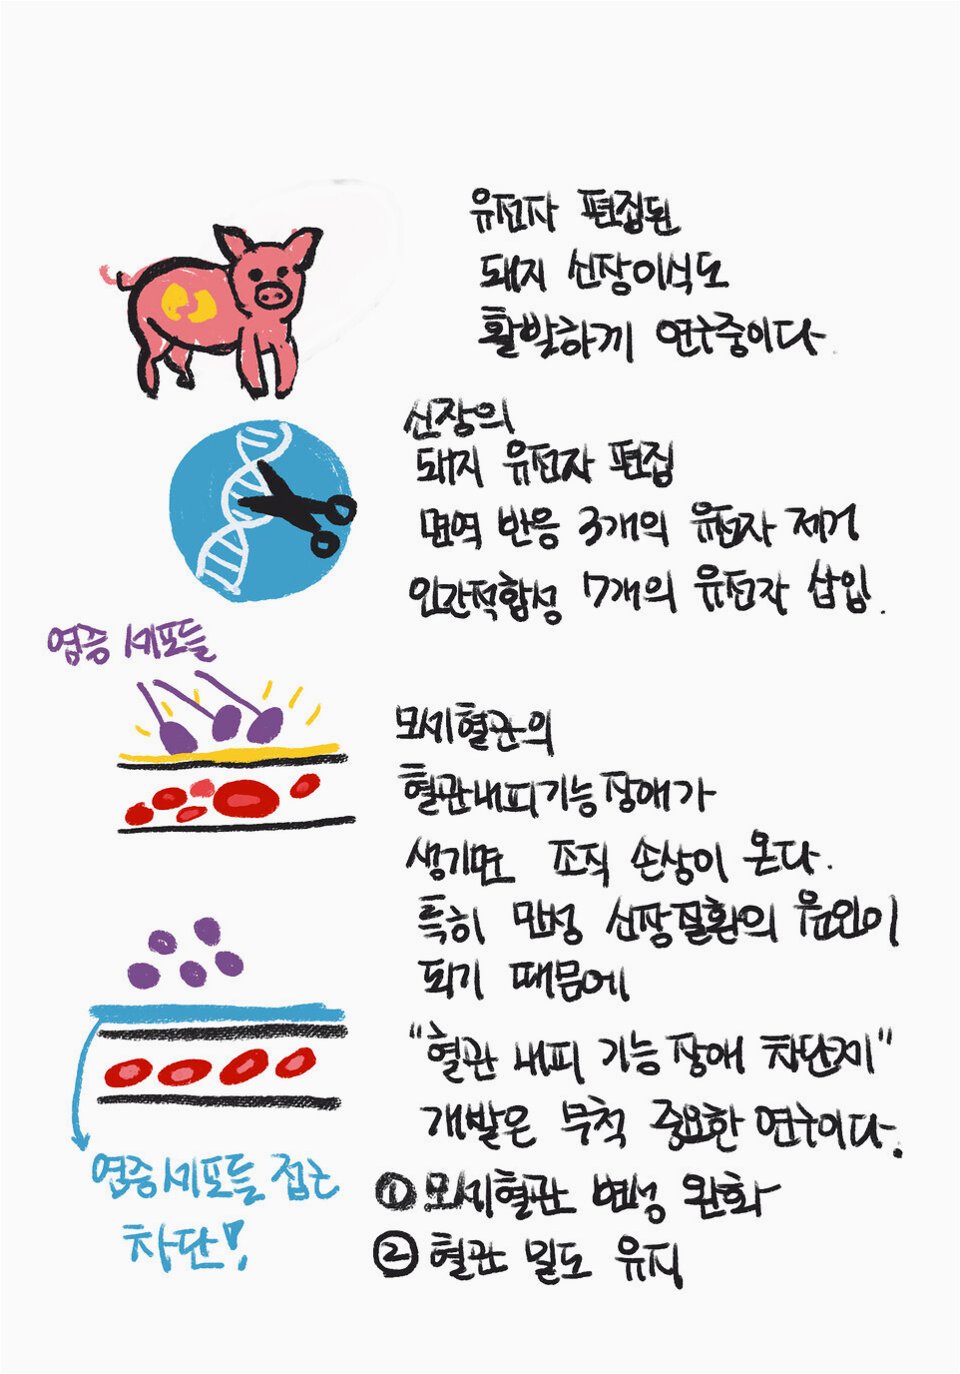 유전자 편집된
돼지 신장이식도
활발하게 연구중이다.
신장의
돼지 유전자 편집
면역 반응 3개의 유전자 제거
인간적합성 7개의 유전자 삽입.
염증 세포들
모세혈관의
혈관내피기능장애가
생기면 조직 손상이 온다.
특히 만성 신장질환의 원인이
되기 때문에
"혈관 내피 기능 장애 차단제"
개발은 무척 중요한 연구이다.
염증세포들 접근
차단!
① 모세혈관 변성 완화
② 혈관 밀도 유지